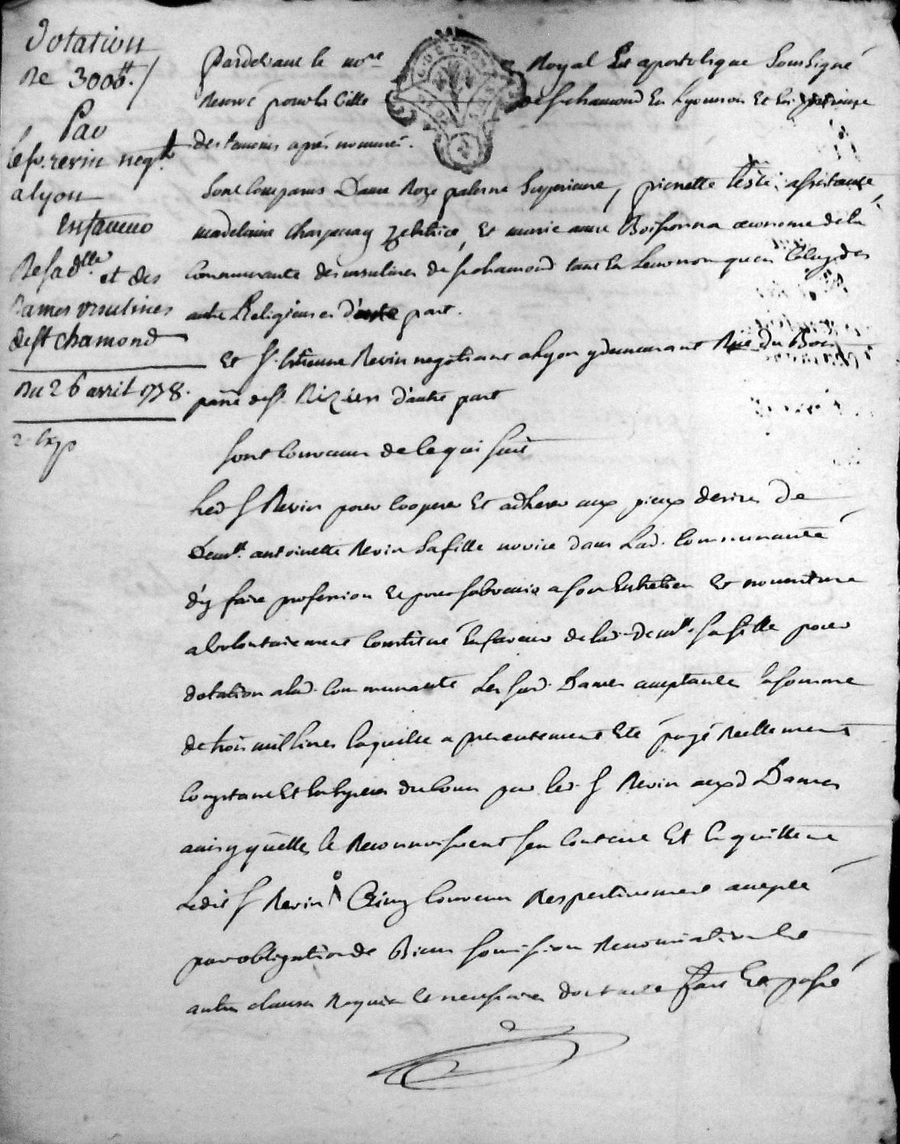 Dotation
de 3000ll./
Par
le sr. revin negt.
a lyon
en faveur
de sa dlle et des
Dames ursulines
de st chamond
Du 26 avril 1778.
2 Exp
Pardevant le nore Royal Et apostolique Soussigné
Reservé pour la Ville de st chamond En Lyonnois Et En presence
des temoins après nommés.
Sont Comparus Dame Roze palerne Superieure, pierrette teste assistante,
madelaine charpenay Zelatrice, Et marie anne Boissonna œconome de la
Communauté des ursulines de st chamond tant En Leur nom qu'en Celuy des
autres Religieuses d'une part.
Et Sr. Etienne Revin negotiant a Lyon y demeurant Rue du Bois
paroisse de st. Nizier d'autre part
Sont Convenu de Ce qui suit
Led Sr Revin pour Cooperer Et adherer aux pieux desirs de
demlle. antoinette Revin Sa fille novice dans Lad. Communauté
d'y faire profession Et pour subvenir a son Entretien Et nourriture
a volontairement Constitué En faveur de lad. demlle. sa fille pour
dotation a lad. Communauté Les susd. Dames acceptantes la somme
de trois mil livres laquelle a presentement Eté payé Reellement
Comptant Et En Especes du Cours par led. Sr Revin auxd Dames
ainsy qu'elles le Reconnoissent s'en Contente Et En quittent
Ledit Sr Revin Ainsy Convenu Respectivement accepté
par obligation de Biens soumission Renonciation Et
autres clauses Requises Et necessaires dont acte fait Et passé